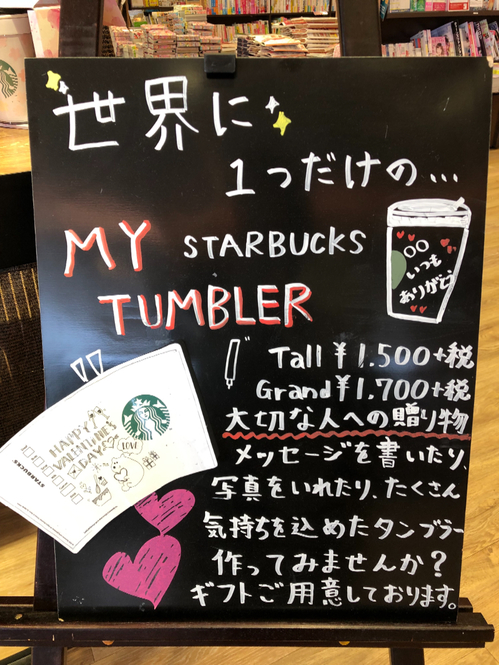 世界に
1つだけの...
MY STARBUCKS
TUMBLER
○○
いつも
ありがとう
Tall ¥1.500+税
Grand ¥1.700+税
大切な人への贈り物
メッセージを書いたり、
写真をいれたり、たくさん
気持ちを込めたタンブラー
作ってみませんか?
ギフトご用意しております。
HAPPY
VALENTINE'S
DAY
LOVE
STARBUCKS